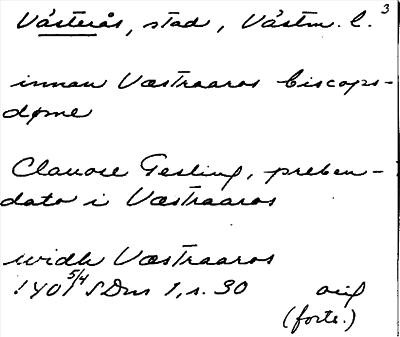 Västerås, stad, Västm. l. 3
innan Væstraaros biscops-
døme
Clauose Gesling, preben-
dato i Væstraaros
widh Væstraaros
1401 5/4 SDns 1, s. 30 orig
(forts.)